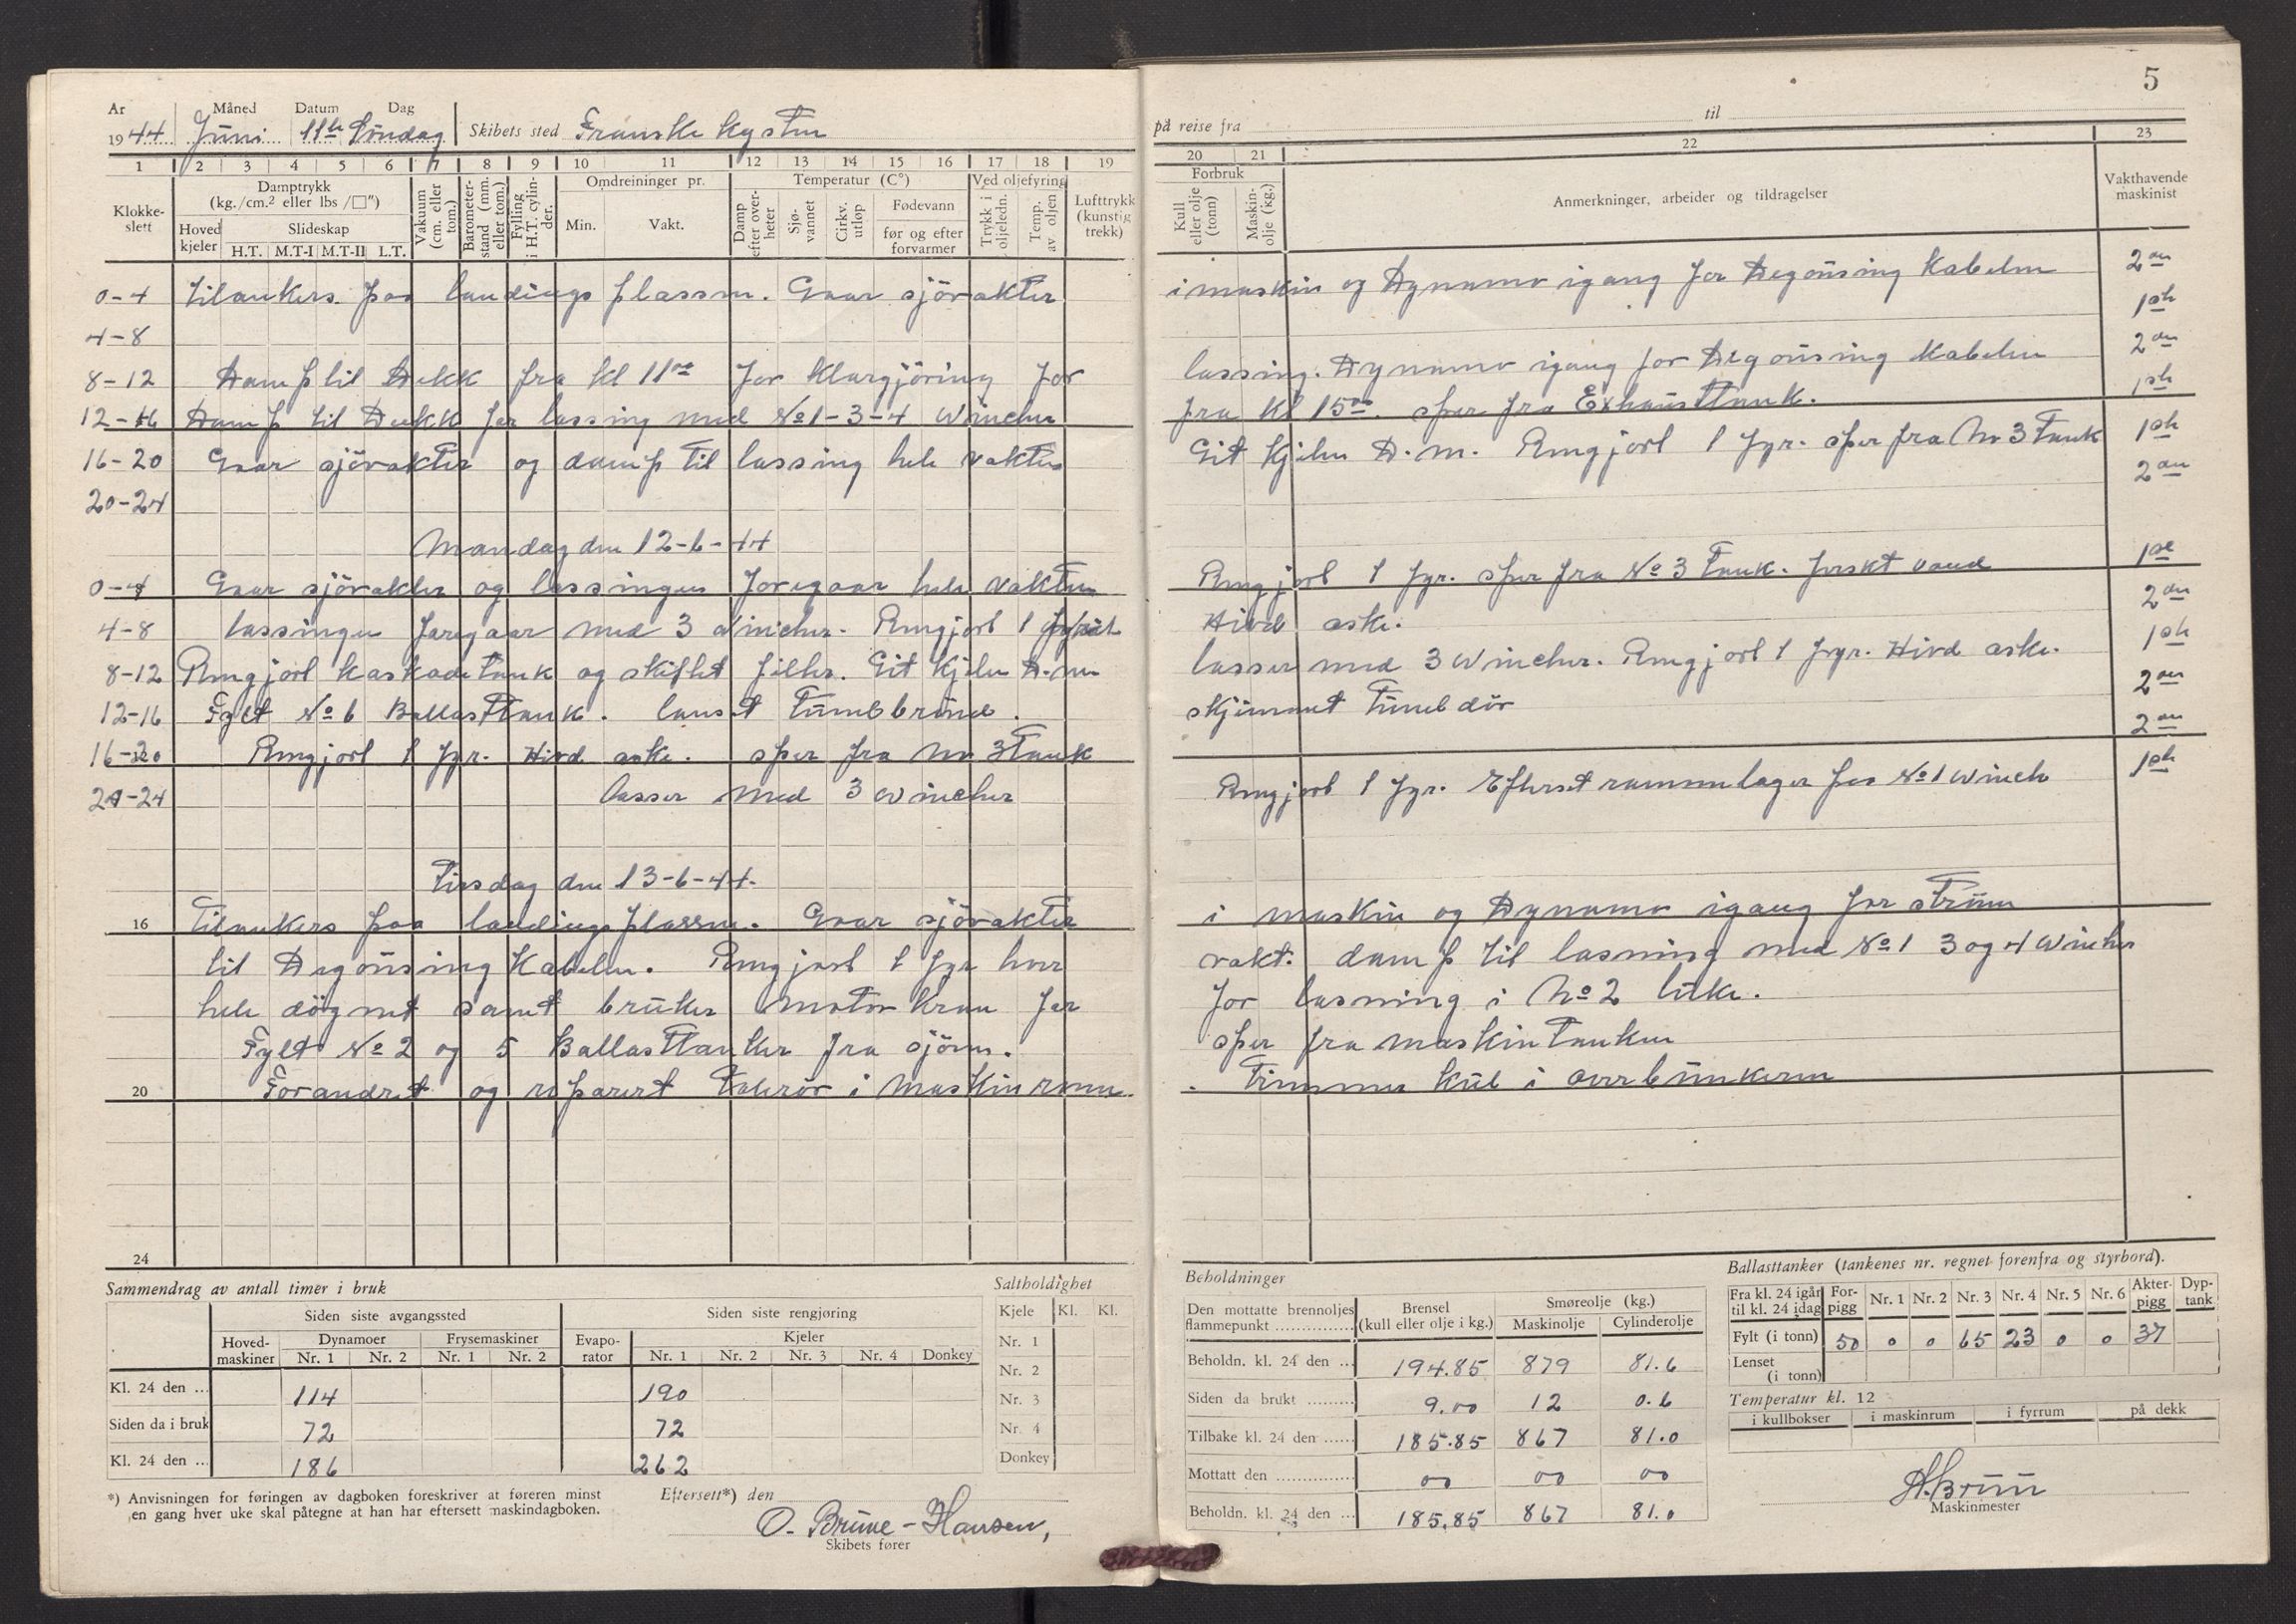 År Måned Datum Dag
1944 Juni 11te Söndag Skibets sted Franske kysten
1 2 3 4 5 6 7 8 9 10 11 12 13 14 15 16 17 18 19
Klokke-slett
Damptrykk (kg./cm.² eller lbs /□")
Hoved kjeler
Slideskap
H.T. M.T-I M.T-II L.T.
Vakuum (cm. eller tom.)
Barometer-stand (mm. eller tom.)
Fylling i H.T. cylin-der.
Omdreininger pr.
Min. Vakt.
Temperatur (C°)
Damp efter over-heter
Sjø-vannet
Cirkv. utløp
Fødevann
før og efter forvarmer
Ved oljefyring
Trykk i oljeledn.
Temp. av oljen
Lufttrykk (kunstig trekk)
0-4 tilankers paa landings plassen. Gaar sjövakter
4-8
8-12 Damp til Dekk fra kl 11oo for klargjöring for
12-16 Damp til Dekk for lassing med No1-3-4 Wincher
16-20 Gaar sjövakter og damp til lassing hele vakten
20-24
Mandag den 12-6-44
0-4 Gaar sjövakter og lassingen foregaar hele vakten
4-8 lassingen foregaar med 3 Wincher. Rengjort 1
8-12 Rengjort kaskadetank og skiftet filter. Git kjelen D.m
12-16 Fylt No 6 Ballasttank. lenset Tunelbrönd.
16-20 Rengjort 1 fyr. Hivd aske. sper fra No 3 Tank
20-24 lasser med 3 wincher
Tirsdag den 13-6-44.
16 Tilankers paa landings plassen. Gaar sjövakter
til Degöusing Kabelen. Rengjort 1 fyr hver
hele dögnet samt bruker motor kran for
Fylt No 2 og 5 Ballasttanker fra sjöen.
20 Forandret og reparert i Maskinrom.
24
Sammendrag av antall timer i bruk
Siden siste avgangssted Siden siste rengjøring
Hoved-maskiner Dynamoer Frysemaskiner Evapo-rator Kjeler
Nr. 1 Nr. 2 Nr. 1 Nr. 2 Nr. 1 Nr. 2 Nr. 3 Nr. 4 Donkey
Kl. 24 den ... 114 190
Siden da i bruk 72 72
Kl. 24 den ... 186 262
Saltholdighet
Kjele Kl. Kl.
Nr. 1
Nr. 2
Nr. 3
Nr. 4
Donkey
*) Anvisningen for føringen av dagboken foreskriver at føreren minst
en gang hver uke skal påtegne at han har eftersett maskindagboken.
Eftersett*) den
O. Brune-Hansen,
Skibets fører
5
på reise fra til
20 21 22 23
Forbruk
Kull eller olje (tonn)
Maskin-olje (kg.)
Anmerkninger, arbeider og tildragelser
Vakthavende maskinist
i maskin og Dynamo igang for Degöusing Kabelen 2an
1ste
lassing. Dynamo igang for Degöusing Kabelen 2an
fra kl 15oo. sper fra Exhausttank. 1ste
Git kjelen D.m. Rengjort 1 fyr. sper fra No 3 Tank 1ste
2an
Rengjort 1 fyr. sper fra No 3 Tank. ferskt vand 1ste
Hivd aske. 2an
lasser med 3 Wincher. Rengjort 1 fyr. Hivd aske. 1ste
skjinnet Tunel dör 2an
2an
Rengjort 1 fyr. Efterset rammelager paa No 1 Winch 1ste
i maskin og Dynamo igang for ström
vakt. damp til lasning med No 1 3 og 4 Wincher
for lasning i No 2 luke.
sper fra maskintanken
. Trimmer kul i overbunkeren
Beholdninger
Den mottatte brennoljes flammepunkt ............... Brensel (kull eller olje i kg.) Smøreolje (kg.)
Maskinolje Cylinderolje
Beholdn. kl. 24 den ... 194.85 879 81.6
Siden da brukt ......... 9.00 12 0.6
Tilbake kl. 24 den ...... 185.85 867 81.0
Mottatt den ............... oo oo oo
Beholdn. kl. 24 den ... 185.85 867 81.0
Ballasttanker (tankenes nr. regnet forenfra og styrbord).
Fra kl. 24 igår til kl. 24 idag For-pigg Nr. 1 Nr. 2 Nr. 3 Nr. 4 Nr. 5 Nr. 6 Akter-pigg Dyp-tank
Fylt (i tonn) 50 0 0 65 23 0 0 37
Lenset (i tonn)
Temperatur kl. 12
i kullbokser i maskinrum i fyrrum på dekk
A. Brun
Maskinmester